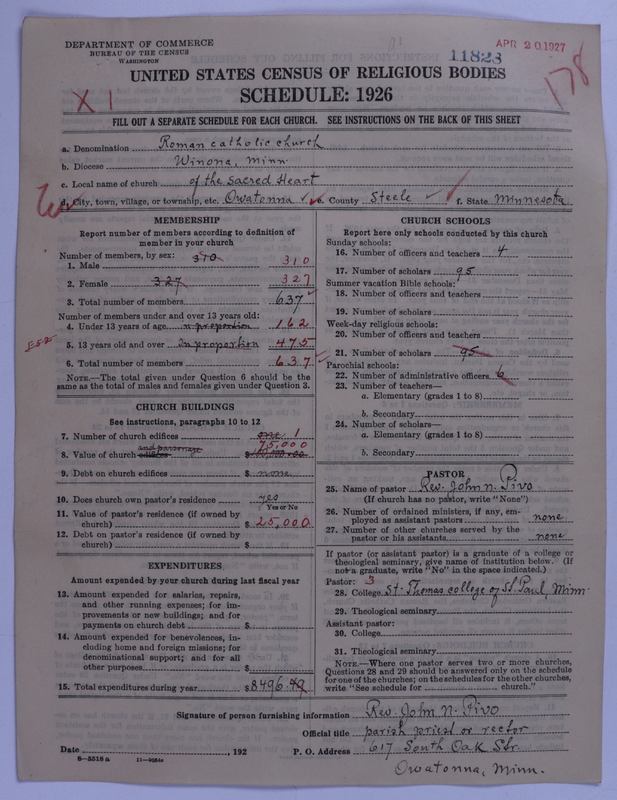 DEPARTMENT OF COMMERCE
BUREAU OF THE CENSUS
WASHINGTON
11823
APR 20 1927
178
X 1
UNITED STATES CENSUS OF RELIGIOUS BODIES
SCHEDULE: 1926
FILL OUT A SEPARATE SCHEDULE FOR EACH CHURCH. SEE INSTRUCTIONS ON THE BACK OF THIS SHEET
a. Denomination Roman catholic church
b. Diocese Winona, Minn.
c. Local name of church of the Sacred Heart
d. City, town, village, or township, etc. Owatonna e. County Steele f. State Minnesota
MEMBERSHIP
Report number of members according to definition of
member in your church
Number of members, by sex: 310
1. Male 310
2. Female 327 327
3. Total number of members 637
Number of members under and over 13 years old:
4. Under 13 years of age in proportion 162
5. 13 years old and over in proportion 475
6. Total number of members 637
NOTE.—The total given under Question 6 should be the
same as the total of males and females given under Question 3.
CHURCH BUILDINGS
See instructions, paragraphs 10 to 12
7. Number of church edifices one 1
and parsonage 75,000
8. Value of church edifices $100,000.00
9. Debt on church edifices $ none
10. Does church own pastor's residence yes
Yes or No
11. Value of pastor's residence (if owned by
church) $ 25,000
12. Debt on pastor's residence (if owned by
church) $
EXPENDITURES
Amount expended by your church during last fiscal year
13. Amount expended for salaries, repairs,
and other running expenses; for im-
provements or new buildings; and for
payments on church debt $
14. Amount expended for benevolences, in-
cluding home and foreign missions; for
denominational support; and for all
other purposes $
15. Total expenditures during year $8496.49
CHURCH SCHOOLS
Report here only schools conducted by this church
Sunday schools:
16. Number of officers and teachers 4
17. Number of scholars 95
Summer vacation Bible schools:
18. Number of officers and teachers
19. Number of scholars
Week-day religious schools:
20. Number of officers and teachers
21. Number of scholars 95
Parochial schools:
22. Number of administrative officers 6
23. Number of teachers—
a. Elementary (grades 1 to 8)
b. Secondary
24. Number of scholars—
a. Elementary (grades 1 to 8)
b. Secondary
PASTOR
25. Name of pastor Rev. John N. Pivo
(If church has no pastor, write "None")
26. Number of ordained ministers, if any, em-
ployed as assistant pastors none
27. Number of other churches served by the
pastor or his assistants none
If pastor (or assistant pastor) is a graduate of a college or
theological seminary, give name of institution below. (If
not a graduate, write "No" in the space indicated.)
Pastor: 3
28. College St. Thomas college of St. Paul, Minn.
29. Theological seminary
Assistant pastor:
30. College
31. Theological seminary
NOTE.—Where one pastor serves two or more churches,
Questions 28 and 29 should be answered only on the schedule
for one of the churches; on the schedules for the other churches,
write "See schedule for church."
Signature of person furnishing information Rev. John N. Pivo
Official title parish priest or rector
Date , 192 P. O. Address 617 South Oak Str.
8-5518a 11-9054a
Owatonna, Minn.